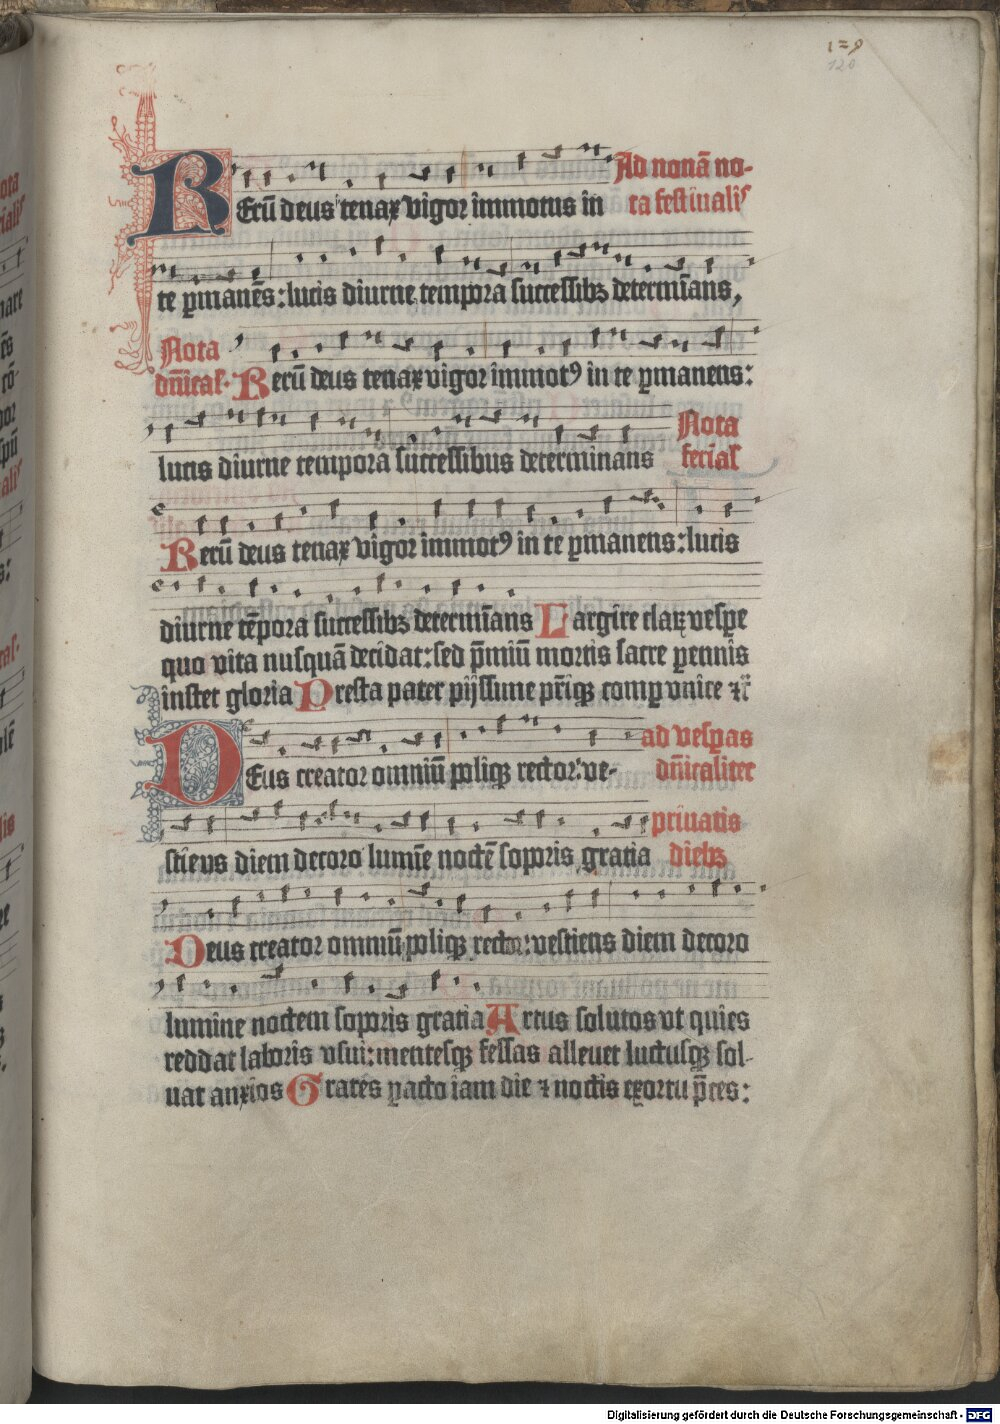 129
120
REcū deus tenax vigor immotus in Ad nonā no-
ta festiualis
te ꝑmanēs: lucis diurne tempora successibꝫ determīans,
Nota
dn̄icał. Recū deus tenax vigor immotꝰ in te ꝑmanens:
lucis diurne tempora successibus determinans Nota
feriał
Recū deus tenax vigor immotꝰ in te ꝑmanens: lucis
diurne tēpora successibꝫ determīans Largire claꝝ vespe
quo vita nusquā decidat: sed p̄miū mortis sacre ꝑennis
instet gloria Presta pater pijssime pr̄iqꝫ compar vnice ⁊
DEus creator omniū poliqꝫ rector: ve- ad vesꝑas
dn̄icaliter
stiens diem decoro lumīe noctē soporis gratia priuatis
diebꝫ
Deus creator omniū poliqꝫ rector: vestiens diem decoro
lumine noctem soporis gratia Artus solutos vt quies
reddat laboris vsui: mentesqꝫ fessas alleuet luctusqꝫ sol-
uat anxios Grates ꝑacto iam die ⁊ noctis exortu p̄ces:
Digitalisierung gefördert durch die Deutsche Forschungsgemeinschaft - DFG